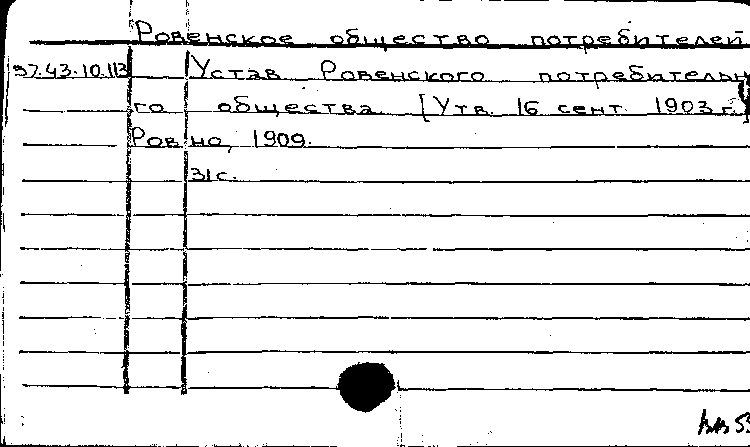 Ровенское общество потребителей
37.43.10.113 Устав Ровенского потребительн
го общества [Утв. 16 сент. 1903 г.]
Ровно, 1909.
31с.